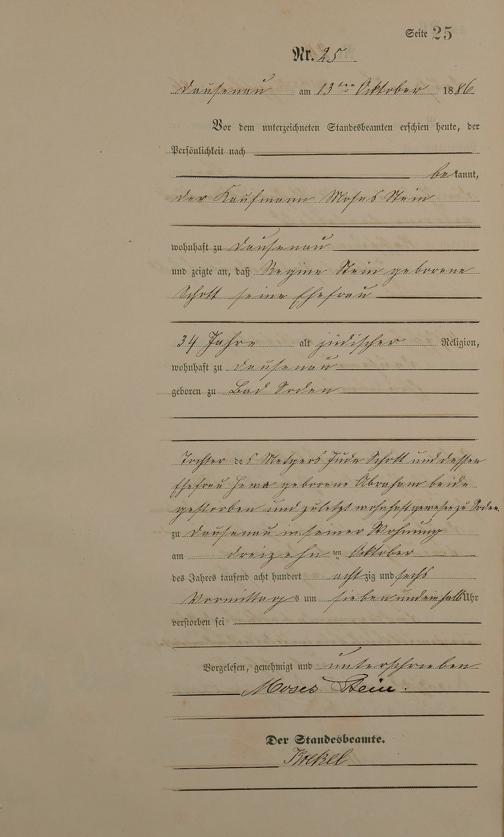 Seite 25
Nr. 25
Dausenau am 13ten Oktober 1886
Vor dem unterzeichneten Standesbeamten erschien heute, der
Persönlichkeit nach
bekannt,
der Kaufmann Moses Stein
wohnhaft zu Dausenau
und zeigte an, daß Regine Stein geborene
Schott seine Ehefrau
34 Jahre alt jüdischer Religion,
wohnhaft zu Dausenau
geboren zu Bad Soden
Tochter des Metzgers Juda Schott und dessen
Ehefrau geborene Abraham beide
gestorben und zuletzt wohnhaft gewesen zu Soden
zu Dausenau in seiner Wohnung
am dreizehnten Oktober
des Jahres tausend acht hundert achtzig und sechs
Vormittags um sieben und ein halb Uhr
verstorben sei
Vorgelesen, genehmigt und unterschrieben
Moses Stein.
Der Standesbeamte.